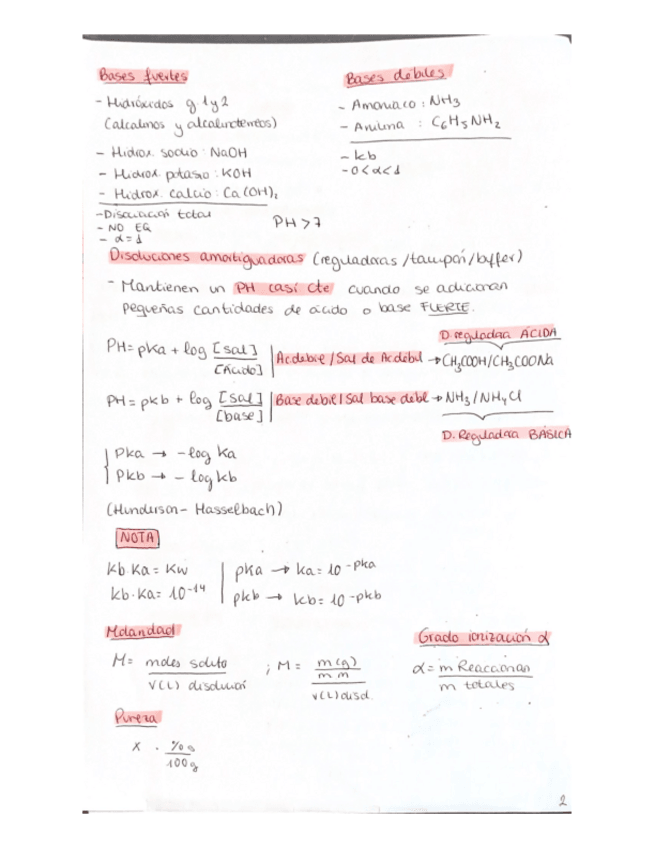 Bases fuertes
- Hidróxidos g. 1 y 2
(alcalinos y alcalinoterreos)
- Hidrox. sodio : NaOH
- Hidrox. potasio : KOH
- Hidrox. calcio : Ca(OH)₂
- Disociación total
- NO EQ
- α = 1
Bases debiles
- Amoniaco : NH3
- Anilina : C6H5NH2
- kb
- 0 < α < 1
PH > 7
Disoluciones amortiguadoras (reguladoras /tampón/buffer)
- Mantienen un PH casi cte cuando se adicionan
pequeñas cantidades de ácido o base FUERTE.
D. reguladora ÁCIDA
PH = pKa + log [sal] / [Ácido] | Ac debil / Sal de Ac debil → CH3COOH/CH3COONa
PH = pkb + log [sal] / [base] | Base debil / Sal base debil → NH3 / NH4Cl
D. Reguladora BÁSICA
Pka → -log Ka
Pkb → - log kb
(Hunderson - Hasselbach)
NOTA
kb Ka = Kw | pKa → Ka = 10^-pka
kb · Ka = 10^-14 | pkb → kb = 10^-pkb
Molaridad
M = moles soluto / V(L) disolución ; M = m(g) / mm / V(L) disol.
Grado ionización α
α = m Reaccionan / m totales
Pureza
X · % g / 100 g
2